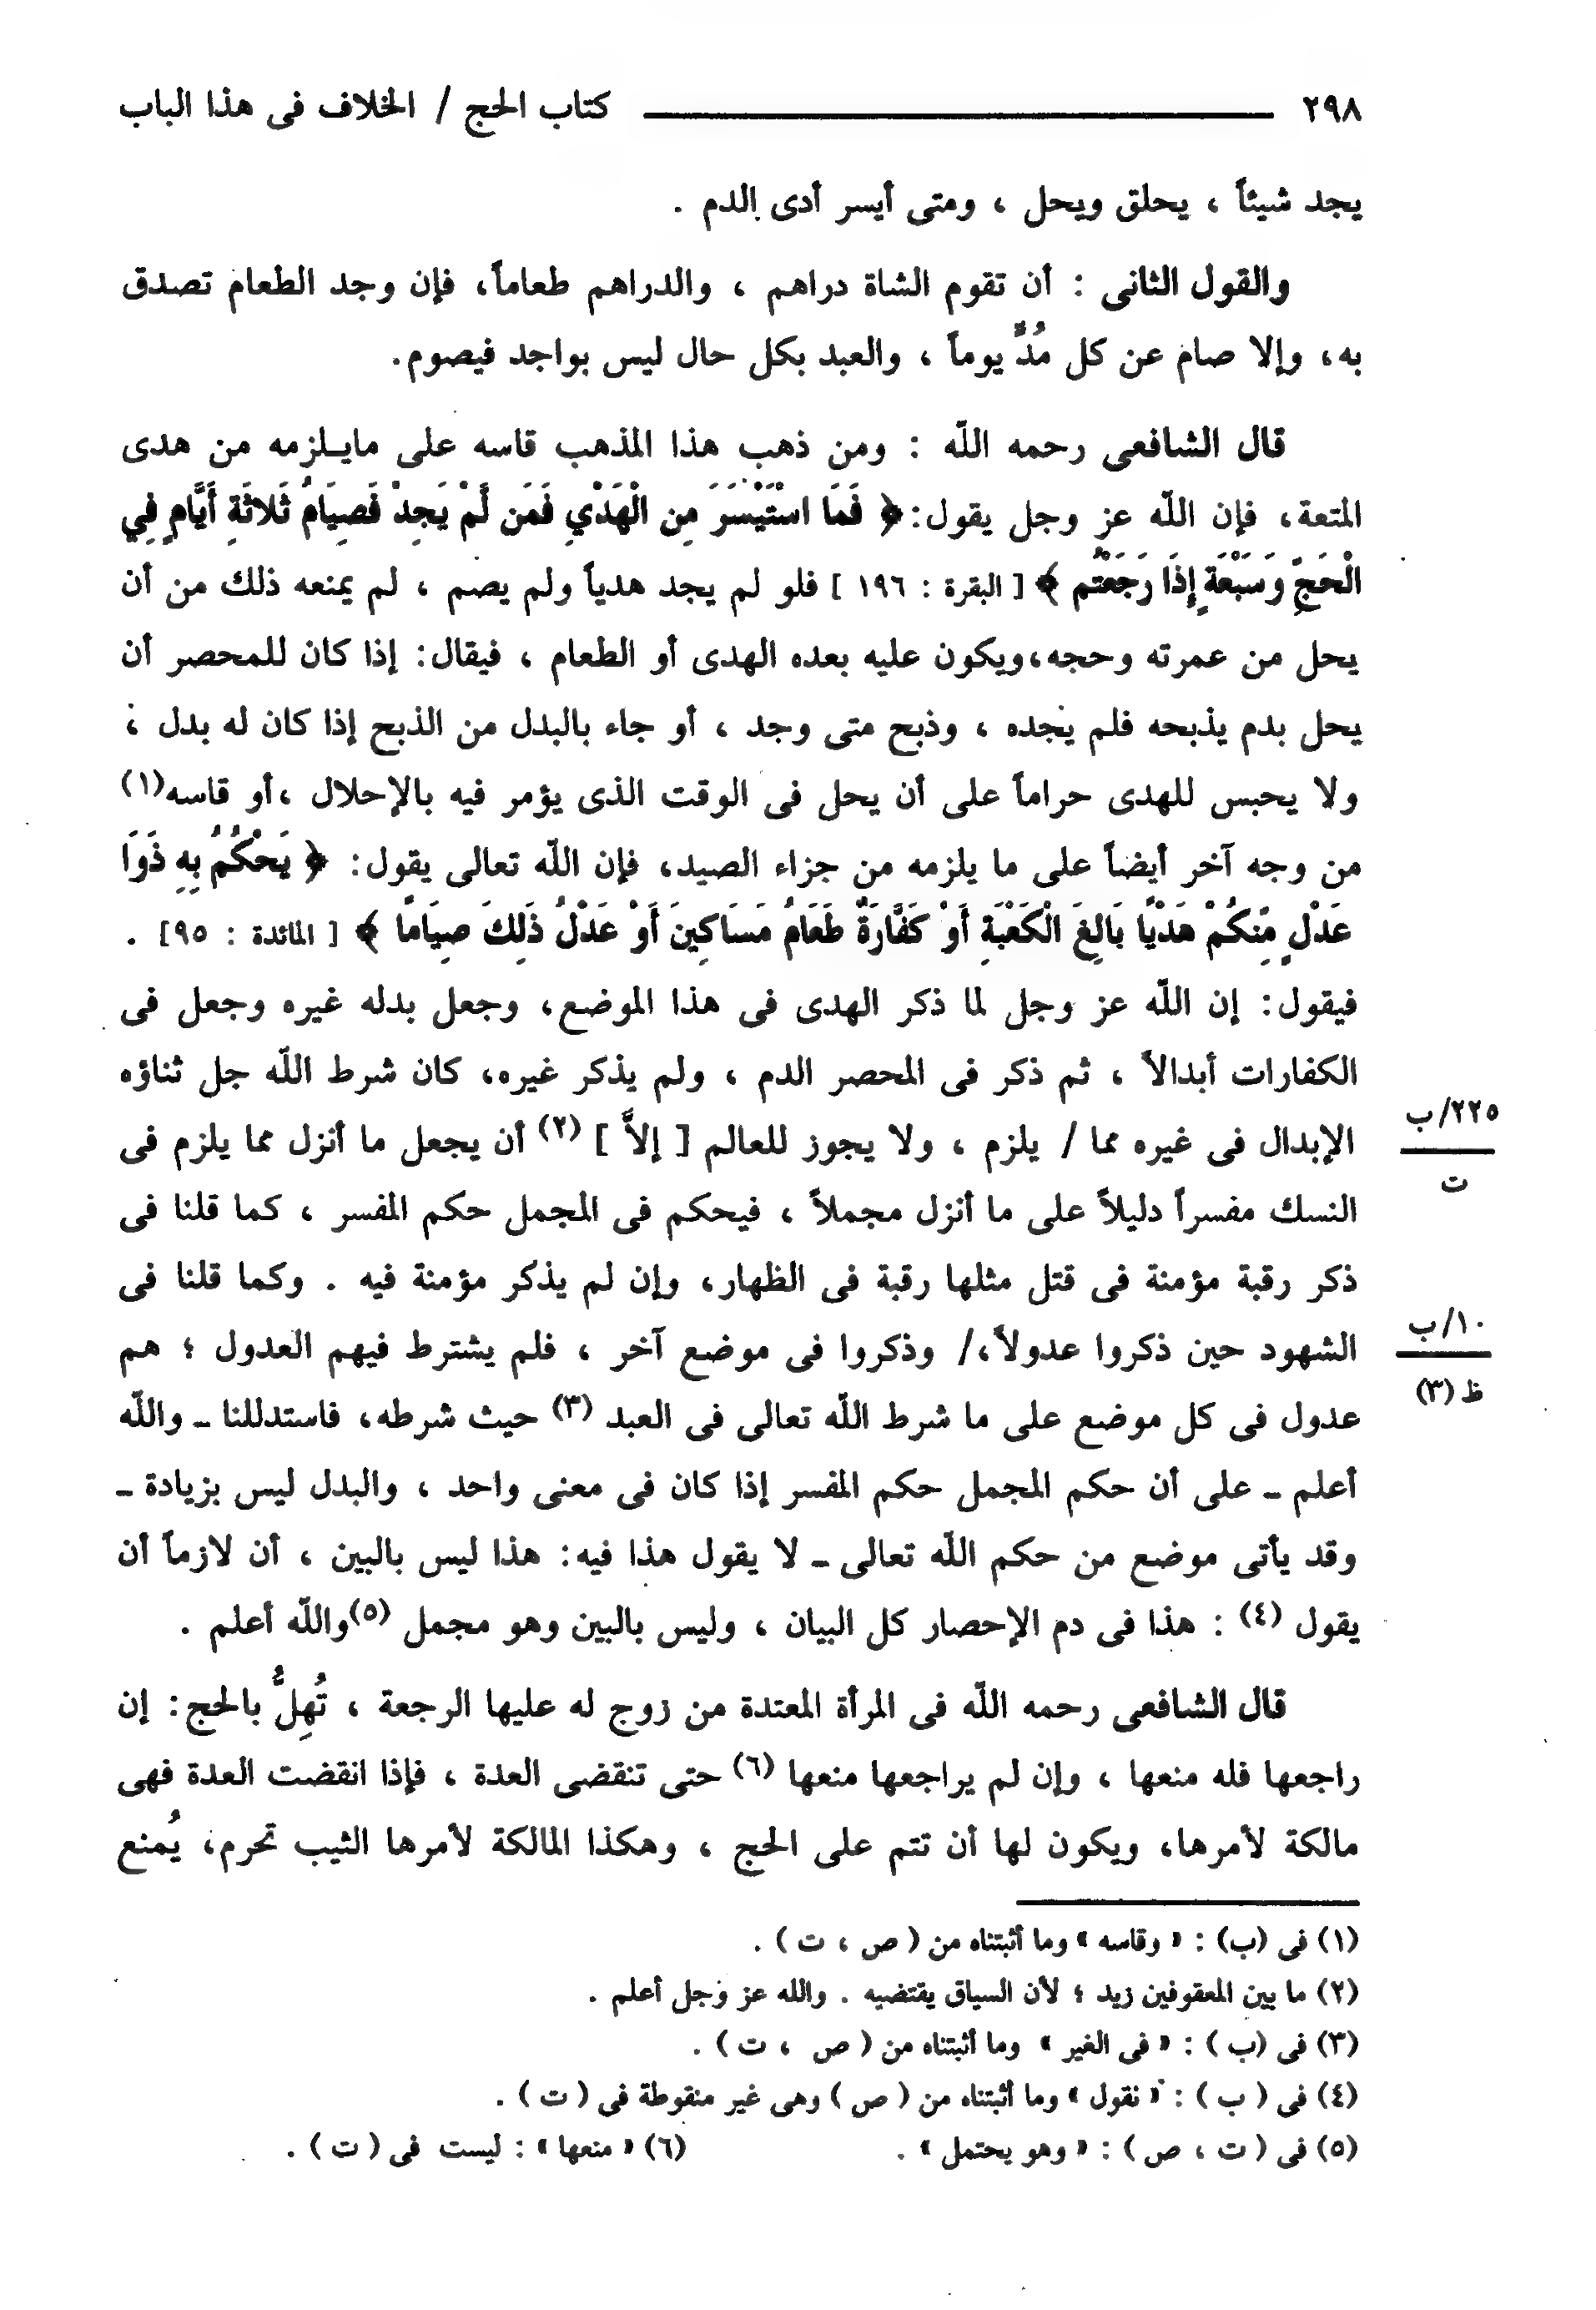 ٢٩٨ كتاب الحج / الخلاف فى هذا الباب
يجد شيئاً ، يحلق ويحل ، ومتى أيسر أدى الدم .
والقول الثانى : أن تقوم الشاة دراهم ، والدراهم طعاماً، فإن وجد الطعام تصدق
به، وإلا صام عن كل مُدٍّ يوماً ، والعبد بكل حال ليس بواجد فيصوم.
قال الشافعى رحمه اللّه : ومن ذهب هذا المذهب قاسه على مايلزمه من هدى
المتعة، فإن اللّه عز وجل يقول: ﴿ فَمَا اسْتَيْسَرَ مِنَ الْهَدْيِ فَمَن لَّمْ يَجِدْ فَصِيَامُ ثَلاثَةِ أَيَّامٍ فِي
الْحَجِّ وَسَبْعَةٍ إِذَا رَجَعْتُم ﴾ [ البقرة : ١٩٦ ] فلو لم يجد هدياً ولم يصم ، لم يمنعه ذلك من أن
يحل من عمرته وحجه،ويكون عليه بعده الهدى أو الطعام ، فيقال: إذا كان للمحصر أن
يحل بدم يذبحه فلم يجده ، وذبح متى وجد ، أو جاء بالبدل من الذبح إذا كان له بدل ،
ولا يحبس للهدى حراماً على أن يحل فى الوقت الذى يؤمر فيه بالإحلال ،أو قاسه(١)
من وجه آخر أيضاً على ما يلزمه من جزاء الصيد، فإن اللّه تعالى يقول: ﴿ يَحْكُمُ بِهِ ذَوَا
عَدْلٍ مِّنكُمْ هَدْيًا بَالِغَ الْكَعْبَةِ أَوْ كَفَّارَةٌ طَعَامُ مَسَاكِينَ أَوْ عَدْلُ ذَلِكَ صِيَامًا ﴾ [ المائدة : ٩٥] .
فيقول: إن اللّه عز وجل لما ذكر الهدى فى هذا الموضع، وجعل بدله غيره وجعل فى
الكفارات أبدالاً ، ثم ذكر فى المحصر الدم ، ولم يذكر غيره، كان شرط اللّه جل ثناؤه
الإبدال فى غيره مما / يلزم ، ولا يجوز للعالم [ إلاَّ ] (٢) أن يجعل ما أنزل مما يلزم فى
٢٢٥/ب
ت
النسك مفسراً دليلاً على ما أنزل مجملاً ، فيحكم فى المجمل حكم المفسر ، كما قلنا فى
ذكر رقبة مؤمنة فى قتل مثلها رقبة فى الظهار، وإن لم يذكر مؤمنة فيه . وكما قلنا فى
الشهود حين ذكروا عدولاً،/ وذكروا فى موضع آخر ، فلم يشترط فيهم العدول ؛ هم
١٠/ب
ظ (٣)
عدول فى كل موضع على ما شرط اللّه تعالى فى العبد (٣) حيث شرطه، فاستدللنا ـ واللّه
أعلم ـ على أن حكم المجمل حكم المفسر إذا كان فى معنى واحد ، والبدل ليس بزيادة ـ
وقد يأتى موضع من حكم اللّه تعالى ـ لا يقول هذا فيه: هذا ليس بالبين ، أن لازماً أن
يقول (٤) : هذا فى دم الإحصار كل البيان ، وليس بالبين وهو مجمل (٥)واللّه أعلم .
قال الشافعى رحمه اللّه فى المرأة المعتدة من زوج له عليها الرجعة ، تُهِلُّ بالحج: إن
راجعها فله منعها ، وإن لم يراجعها منعها (٦) حتى تنقضى العدة ، فإذا انقضت العدة فهى
مالكة لأمرها، ويكون لها أن تتم على الحج ، وهكذا المالكة لأمرها الثيب تحرم، يُمنع
(١) فى (ب) : « وقاسه » وما أثبتناه من ( ص ، ت ) .
(٢) ما بين المعقوفين زيد ؛ لأن السياق يقتضيه . والله عز وجل أعلم .
(٣) فى (ب ) : « فى الغير » وما أثبتناه من ( ص ، ت ) .
(٤) فى ( ب ) : « نقول » وما أثبتناه من ( ص ) وهى غير منقوطة فى ( ت ) .
(٥) فى ( ت ، ص ) : « وهو يحتمل » . (٦) « منعها » : ليست فى ( ت ) .